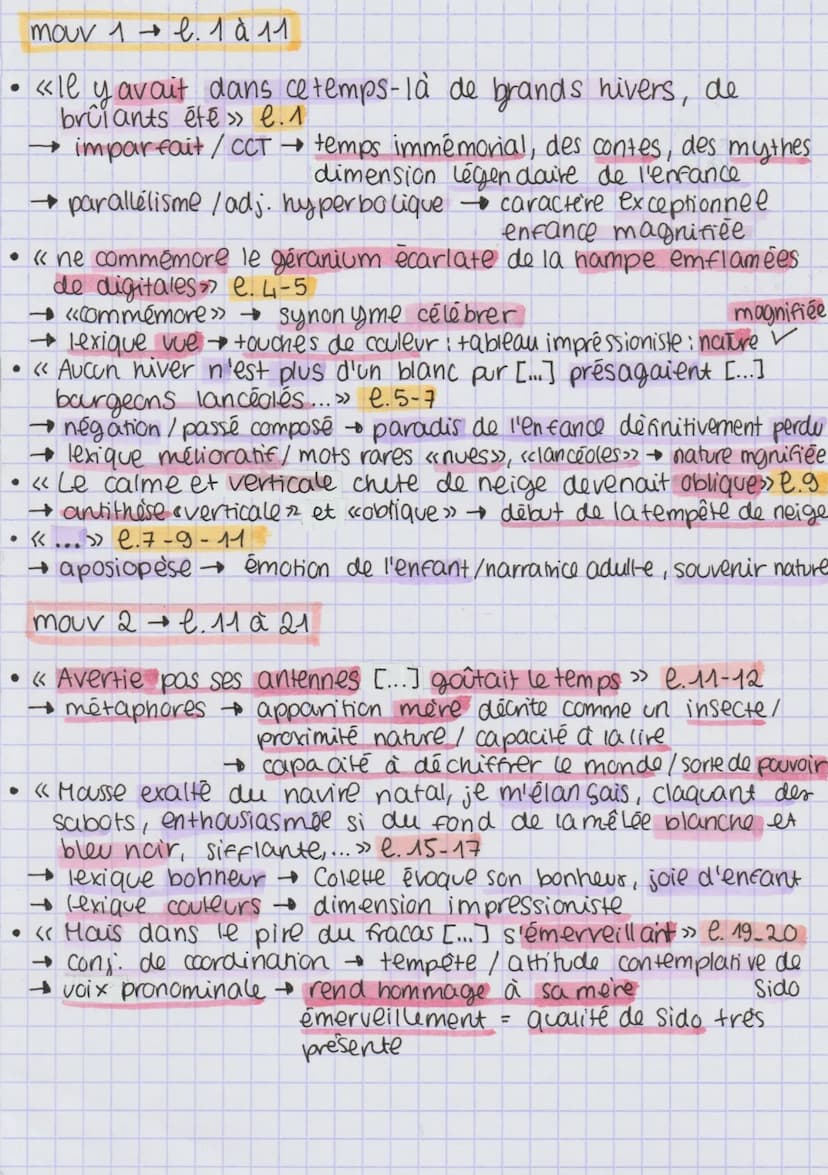 mouv 1 → l. 1 à 11
• «Il y avait dans ce temps-là de grands hivers, de
brûlants été» l.1
→ imparfait / CCT → temps immémorial, des contes, des mythes
dimension légendaire de l'enfance
→ parallélisme / adj. hyperbolique → caractère exceptionnel
enfance magnifiée
• « ne commémore le géranium écarlate de la hampe emflamées
de digitales» l. 4-5
→ «commémore» → synonyme célébrer magnifiée
→ lexique vue → touches de couleur : tableau impressioniste : nature ✓
• « Aucun hiver n'est plus d'un blanc pur [...] présagaient [...]
bourgeons lancéolés...» l.5-7
→ négation / passé composé → paradis de l'enfance définitivement perdu
→ lexique mélioratif / mots rares «nues», «lancéoles» → nature mgnifiée
• « Le calme et verticale chute de neige devenait oblique» l.9
→ antithèse «verticale» et «oblique» → début de la tempête de neige
• « ... » l.7-9-11
→ aposiopèse → émotion de l'enfant/narratrice adulte, souvenir nature
mouv 2 → l. 11 à 21
• « Avertie pas ses antennes [...] goûtait le temps » l.11-12
→ métaphores → apparition mère décrite comme un insecte/
proximité nature / capacité à la lire
→ capacité à déchiffrer le monde / sorte de pouvoir
• « Mousse exalté du navire natal, je m'élançais, claquant des
sabots, enthousiasmée si du fond de la mêlée blanche et
bleu noir, sifflante,...» l. 15-17
→ lexique bohneur → Colette évoque son bonheur, joie d'enfant
→ lexique couleurs → dimension impressioniste
• « Mais dans le pire du fracas [...] s'émerveillait » l. 19-20
→ conj. de coordination → tempête / attitude contemplative de
→ voix pronominale → rend hommage à sa mère Sido
émerveillement = qualité de Sido très
présente